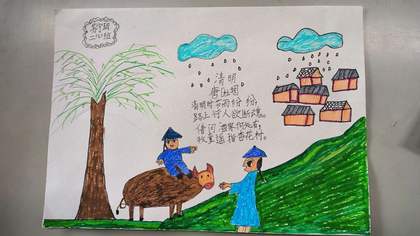 清明
唐 杜牧
清明时节雨纷纷,
路上行人欲断魂。
借问酒家何处有,
牧童遥指杏花村。